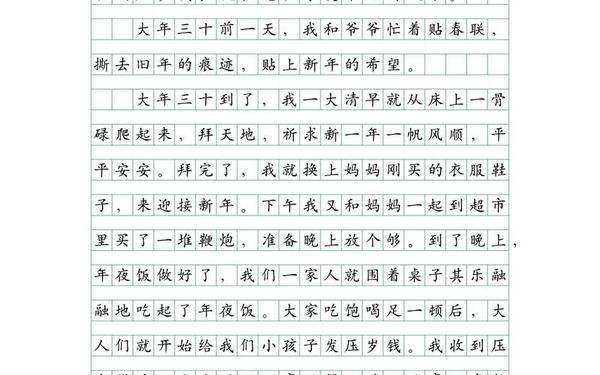 大年三十前一天，我和爷爷忙着贴春联，
撕去旧年的痕迹，贴上新年的希望。
大年三十到了，我一大清早就从床上一骨
碌爬起来，拜天地，祈求新一年一帆风顺，平
平安安。拜完了，我就换上妈妈刚买的衣服鞋
子，来迎接新年。下午我又和妈妈一起到超市
里买了一堆鞭炮，准备晚上放个够。到了晚上，
年夜饭做好了，我们一家人就围着桌子其乐融
融地吃起了年夜饭。大家吃饱喝足一顿后，大
人们就开始给我们小孩子发压岁钱。我收到压